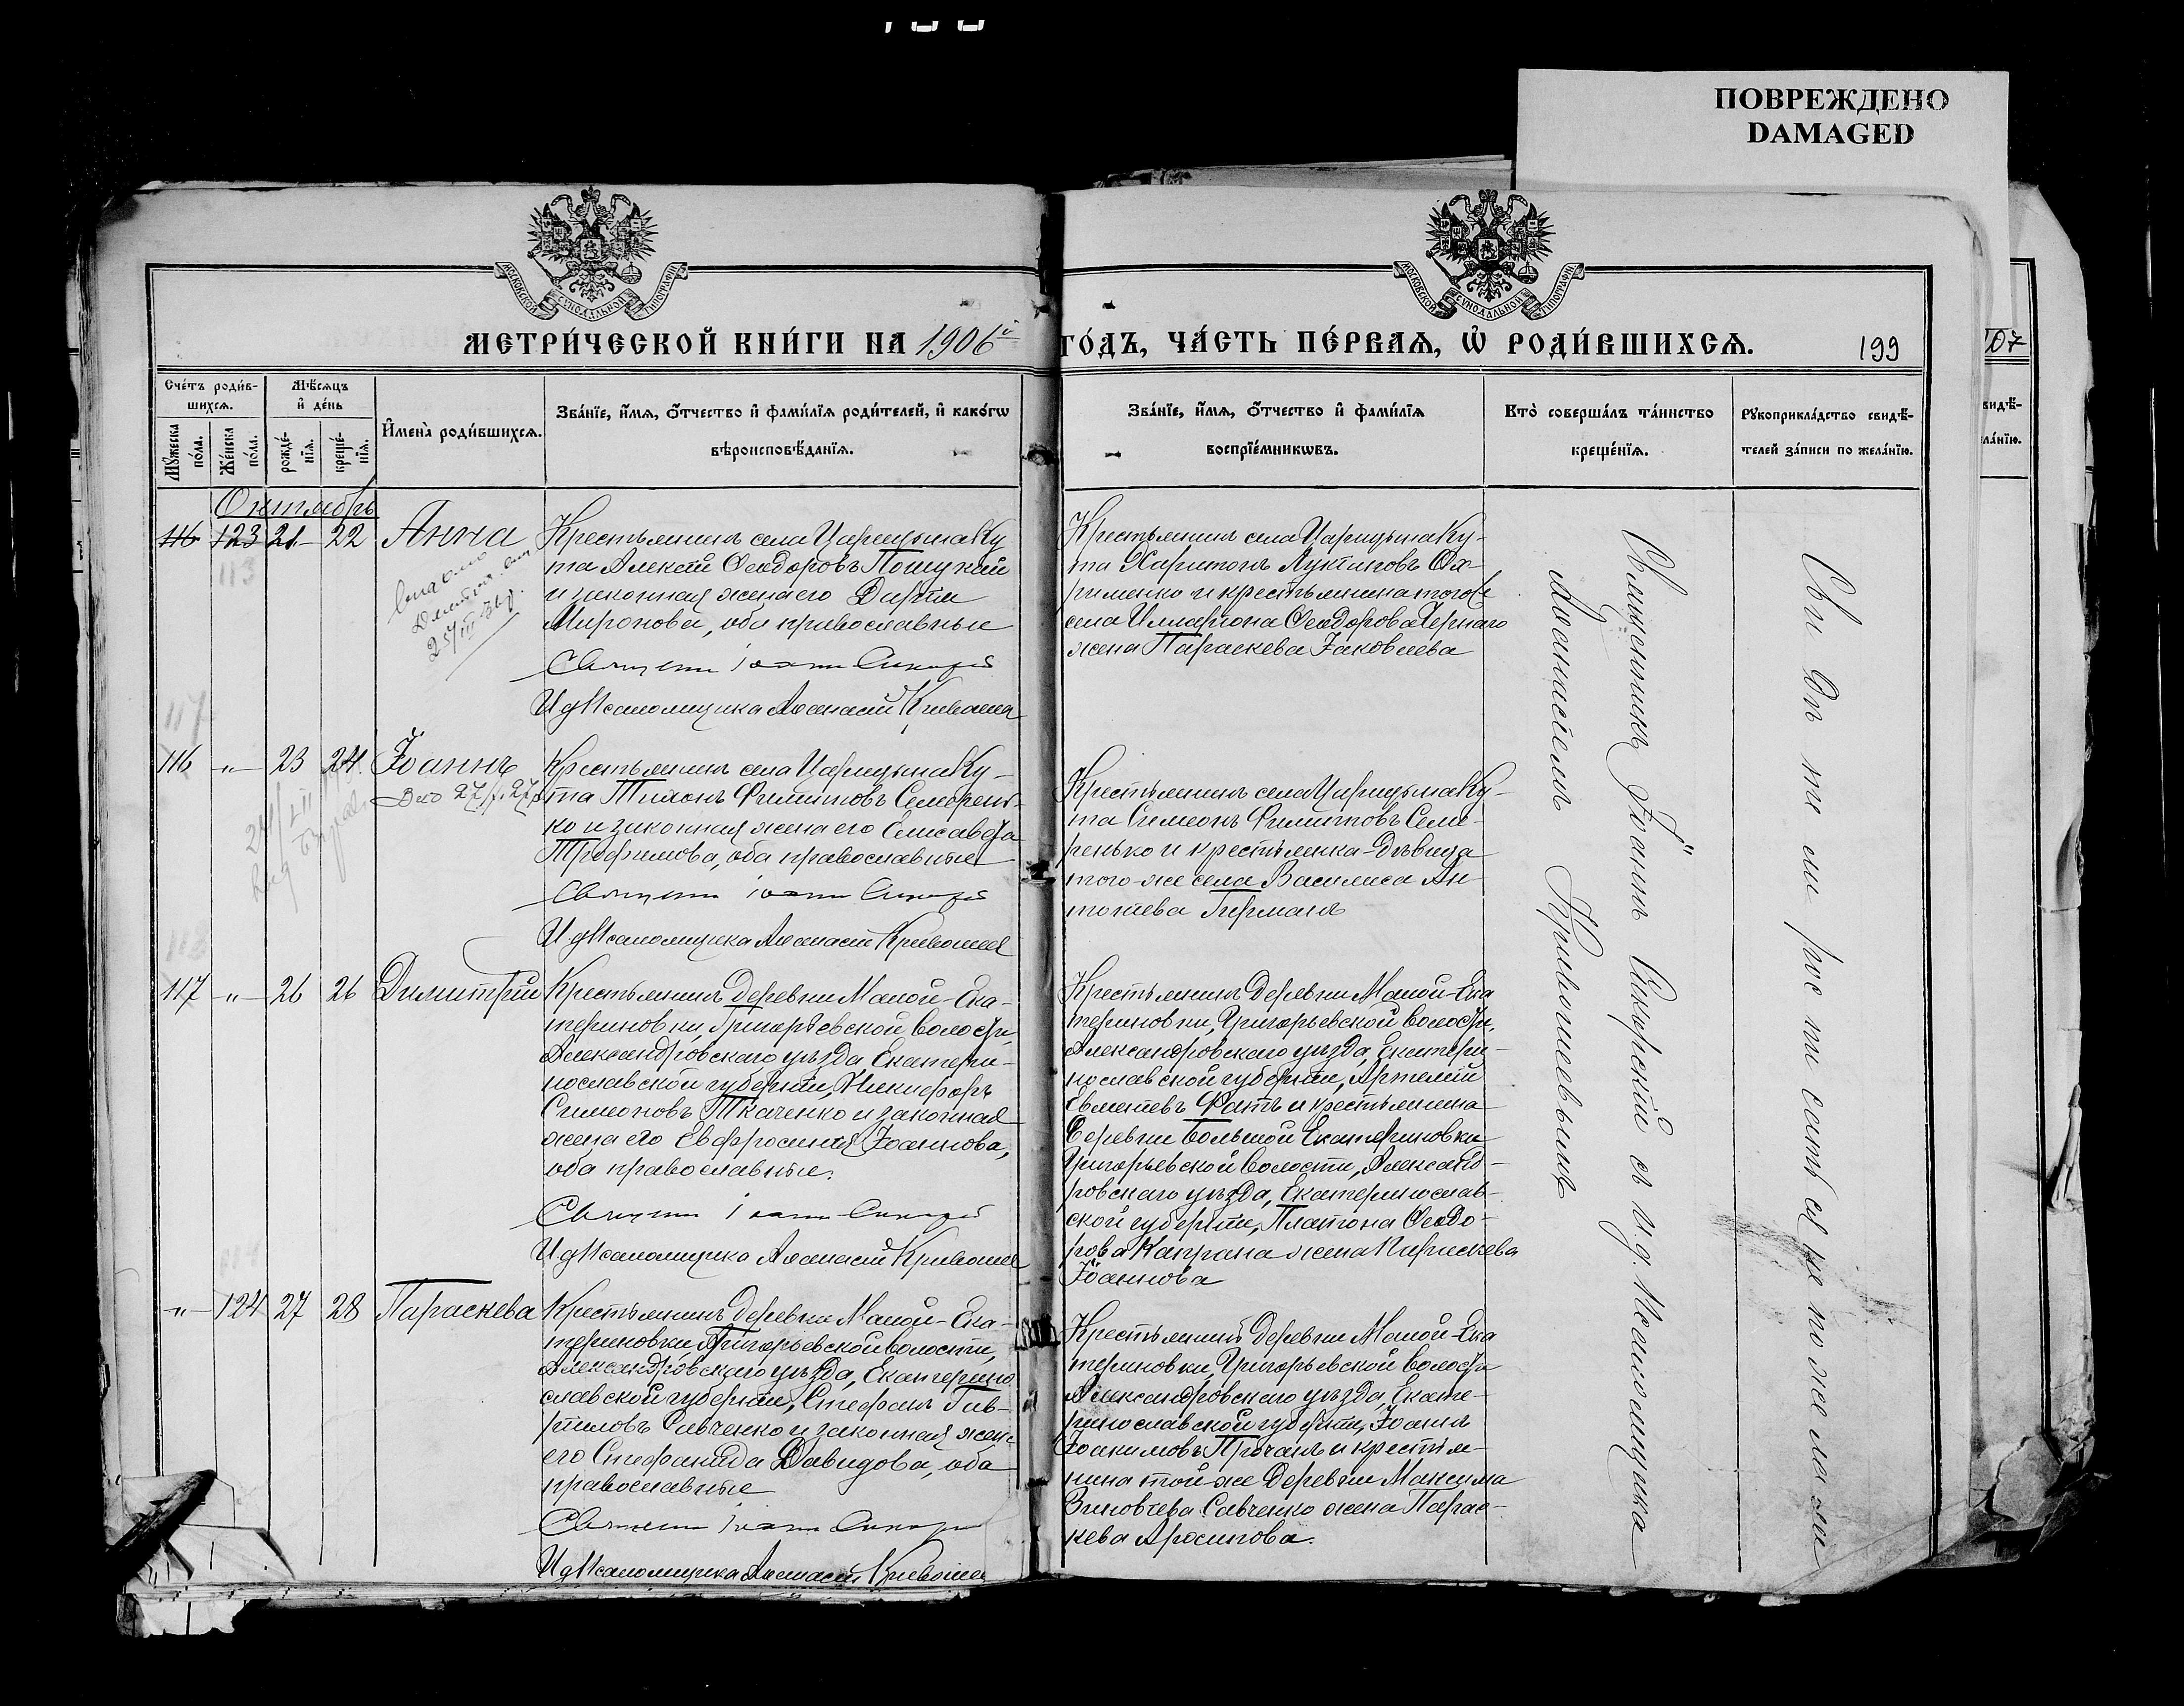 ПОВРЕЖДЕНО
DAMAGED
МОСКОВСКОЙ СѴНОДАЛЬНОЙ ТИПОГРАФІИ
МОСКОВСКОЙ СѴНОДАЛЬНОЙ ТИПОГРАФІИ
МЕТРИ́ЧЕСКОЙ КНИ́ГИ НА 1906й
ГО́ДЪ, ЧА́СТЬ ПЕ́РВАѦ, Ѡ҆ РОДИ́ВШИХСѦ.
199
107
Сче́тъ роди́в-
шихсѧ.
Мѣ́сѧцъ
и҆ де́нь
Мꙋ́жеска
по́ла.
Же́нска
по́ла.
рожде́-
нїѧ.
креще́-
нїѧ.
И҆мена̀ роди́вшихсѧ.
Зва́нїе, и҆́мѧ, ѻ҆́тчество и҆ фами́лїѧ роди́телей, и҆ како́гѡ
вѣроисповѣ́данїѧ.
Зва́нїе, и҆́мѧ, ѻ҆́тчество и҆ фами́лїѧ
воспрїе́мникѡвъ.
Кто̀ соверша́лъ та́инство
креще́нїѧ.
Рꙋкоприкла́дство свидѣ́-
телей за́писи по жела́нїю.
Октябрь
116 123 21 22 Анна
113
Крестьянинъ села Царицына Ку
та Алексій Ѳеодоровъ
и законная жена его Дарія
Миронова, оба православные
Священ Іоаннъ
И д Псаломщика Аѳанасій Кривошея
Крестьянинъ села Царицына Ку-
та Харитонъ Ох-
рименко и крестьянина того же
села Илларіона Ѳеодорова Чернаго
жена Параскева Іаковлева
117
116 -"- 23 24 Іоаннъ
Крестьянинъ села Царицына Ку-
та Тихонъ Филиповъ Семерень-
ко и законная жена его Елисавета
Трофимова, оба православные
Священ Іоаннъ
И д Псаломщика Аѳанасій Кривошея
Крестьянинъ села Царицына Ку-
та Симеонъ Филиповъ Семе-
ренько и крестьянка-дѣвица
того-же села Василиса Ан
тоніева Германъ
117 -"- 26 26 Димитрій
Крестьянинъ деревни Малой-Ека-
териновки, Григорьевской волости,
Александровскаго уѣзда, Екатери-
нославской губерніи, Никифоръ
Симеоновъ Ткаченко и законная
жена его Евфросинія Іоаннова,
оба православные.
Священ Іоаннъ
И д Псаломщика Аѳанасій Кривошея
Крестьянинъ деревни Малой-Ека
териновки, Григорьевской волости,
Александровскаго уѣзда, Екатери-
нославской губерніи, Артемій
Евменіевъ и крестьянина
деревни Большой Екатериновки
Григорьевской волости, Александ-
ровскаго уѣзда, Екатеринослав-
ской губерніи, Платона Ѳеодо-
рова Каплана жена Параскева
Іоаннова
-"- 124 27 28 Параскева
Крестьянинъ деревни Малой-Ека-
териновки, Григорьевской волости,
Александровскаго уѣзда, Екатерино
славской губерніи, Стефанъ Гав-
риловъ Савченко и законная жена
его Стефанида Давидова, оба
православные
Священ Іоаннъ
И д Псаломщика Аѳанасій Кривошея
Крестьянинъ деревни Малой-Ека
териновки, Григорьевской волости
Александровскаго уѣзда, Екате-
ринославской губерніи, Іоаннъ
Іоакимовъ и крестья-
нина той-же деревни Максима
Зиновіева Савченко жена Парас-
кева
Священникъ Іоаннъ съ и.д. Псаломщика
Аѳанасіемъ Кривошеевымъ